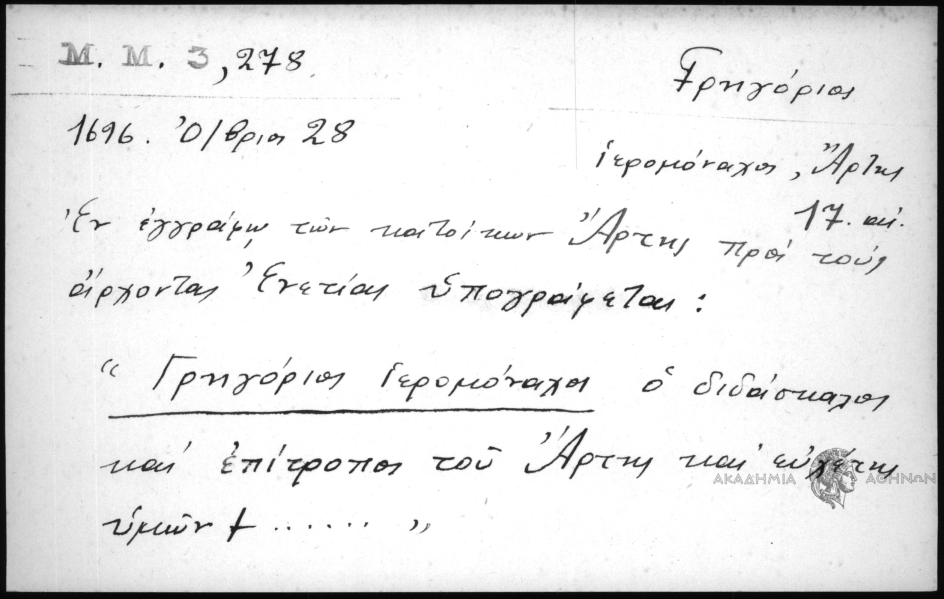 M. M. 3, 278
Γρηγόριος
1696. Ὀ/βριος 28
ἱερομόναχος, Ἄρτης
17. αἰ.
Ἐν ἐγγράφῳ τῶν κατοίκων Ἄρτης πρὸς τοὺς
ἄρχοντας Ἐνετίας ὑπογράφεται:
“ Γρηγόριος ἱερομόναχος ὁ διδάσκαλος
καὶ ἐπίτροπος τοῦ Ἄρτης καὶ εὐχέτης
ὑμῶν + ...... ”
ΑΚΑΔΗΜΙΑ ΑΘΗΝΩΝ